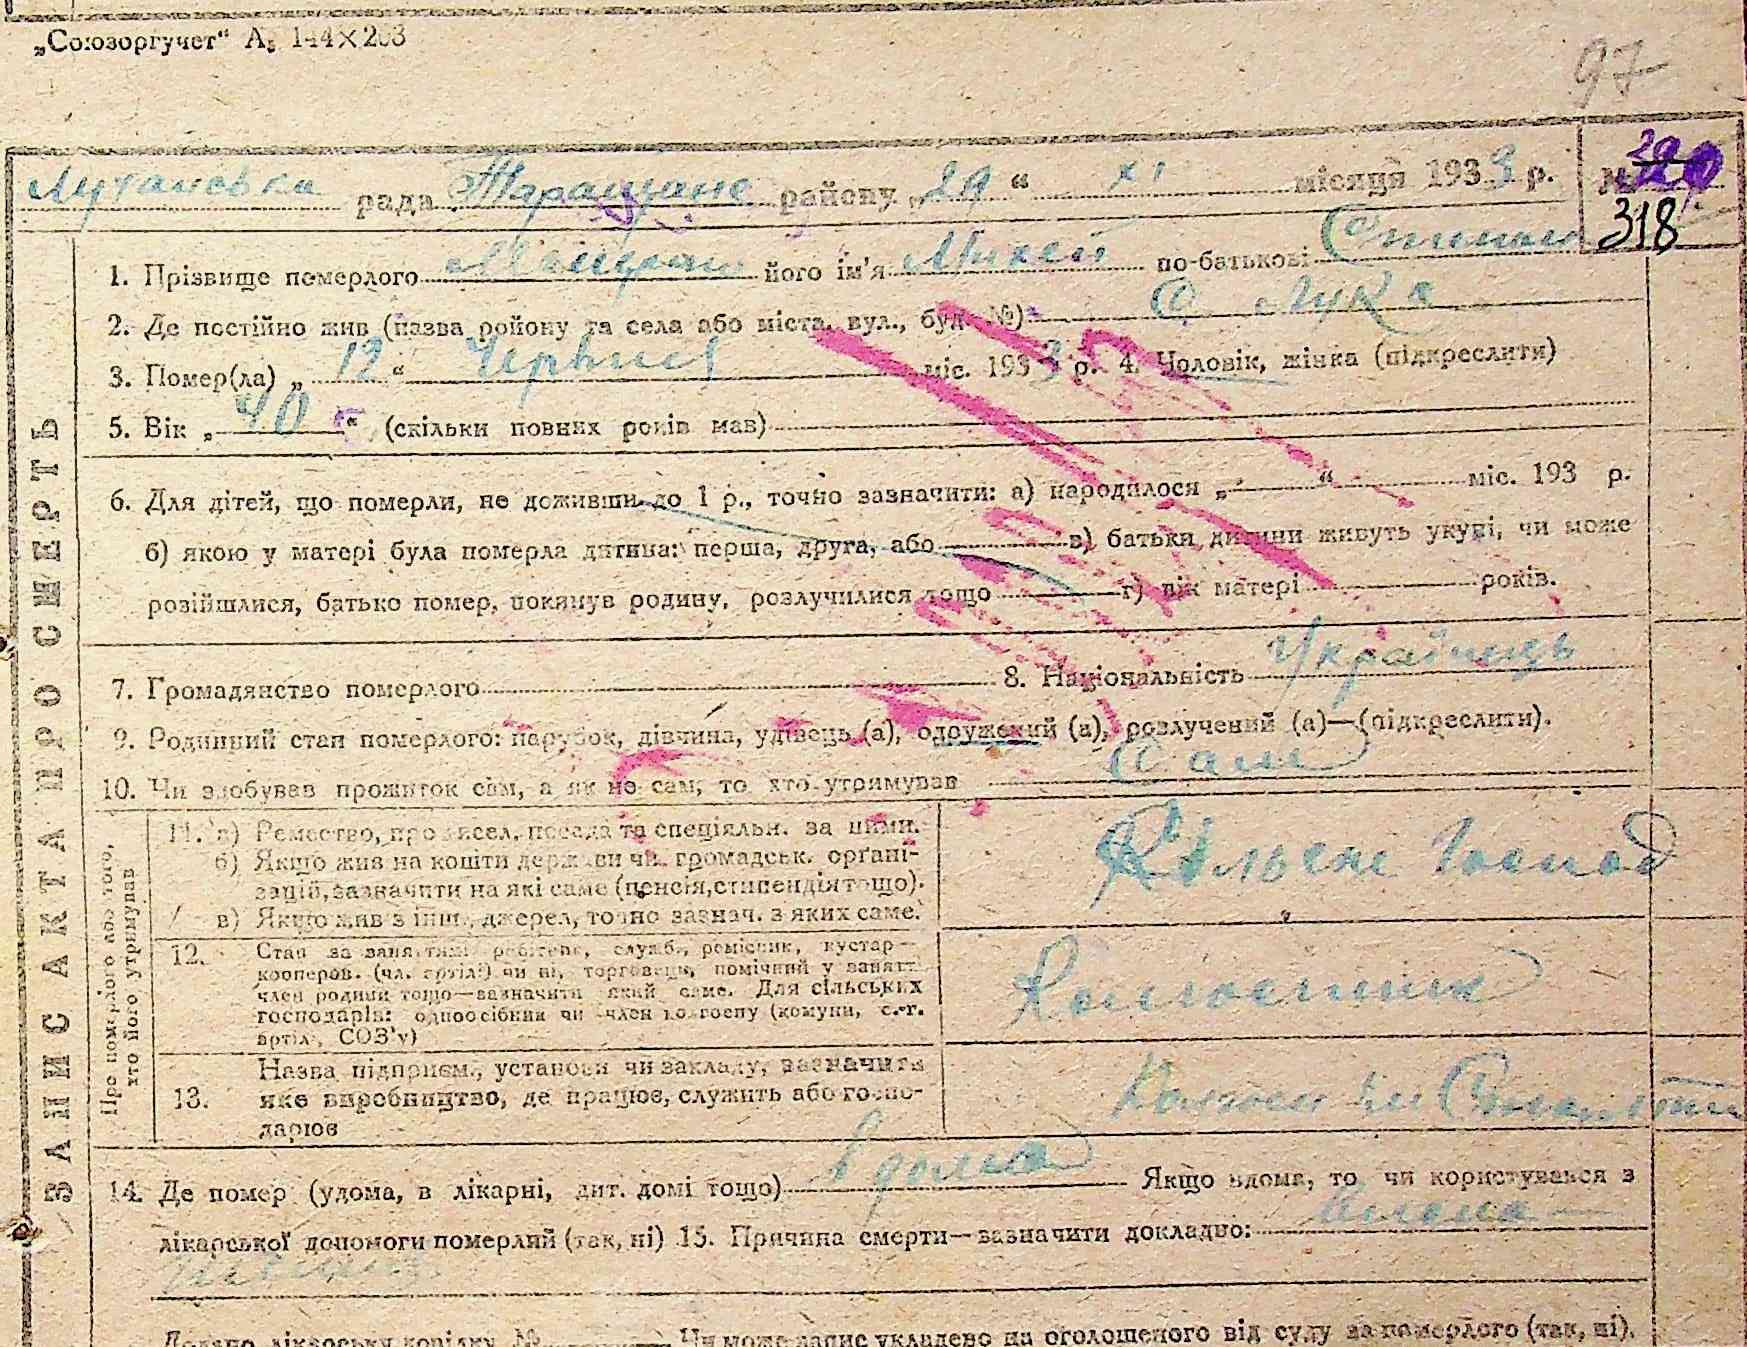 „Союзоргучет“ А5 144×203
97
рада Таращанс району „29“ XI місяця 1933 р. №
318
1. Прізвище померлого його ім'я Михей по-батькові
2. Де постійно жив (назва ройону та села або міста, вул., буд. №) С Лука
3. Помер(ла) „12“ Червня міс. 1933 р. 4. Чоловік, жінка (підкреслити)
5. Вік „40“ (скільки повних років мав)
6. Для дітей, що померли, не доживши до 1 р., точно зазначити: а) народилося „ “ міс. 193 р.
б) якою у матері була померла дитина: перша, друга, або в) батьки дитини живуть укупі, чи може
розійшлися, батько помер, покинув родину, розлучилися тощо г) вік матері років.
7. Громадянство померлого 8. Національність Українець
9. Родинний стан померлого: парубок, дівчина, удівець (а), одружений (а), розлучений (а)—(підкреслити).
10. Чи здобував прожиток сам, а як не сам, то хто утримував Сам
ЗАПИС АКТА ПРО СМЕРТЬ
Про померлого або того, хто його утримував
11. а) Ремество, промисел, посада та спеціяльн. за ними.
б) Якщо жив на кошти держави чи громадськ. орґані-
зацій, зазначити на які саме (пенсія, стипендія тощо).
в) Якщо жив з інш. джерел, точно зазнач. з яких саме.
Сільськ господ
12. Стан за заняттям: робітник, службь, ремісник, кустар—
кооперов. (чл. артілі) чи ні, торговець, помічний у занятті
член родини тощо—зазначити який саме. Для сільських
господарів: одноосібник чи член колгоспу (комуни, с.-г.
артіл., СОЗ'у)
Колгоспник
13. Назва підприєм., установи чи закладу, зазначити
яке виробництво, де працює, служить або госпо-
дарює
Колгосп ім
14. Де помер (удома, в лікарні, дит. домі тощо) вдома Якщо вдома, то чи користувався з
лікарської допомоги померлий (так, ні) 15. Причина смерти—зазначити докладно:
Додано лікарську довідку № Чи може запис укладено на оголошеного від суду за померлого (так, ні).